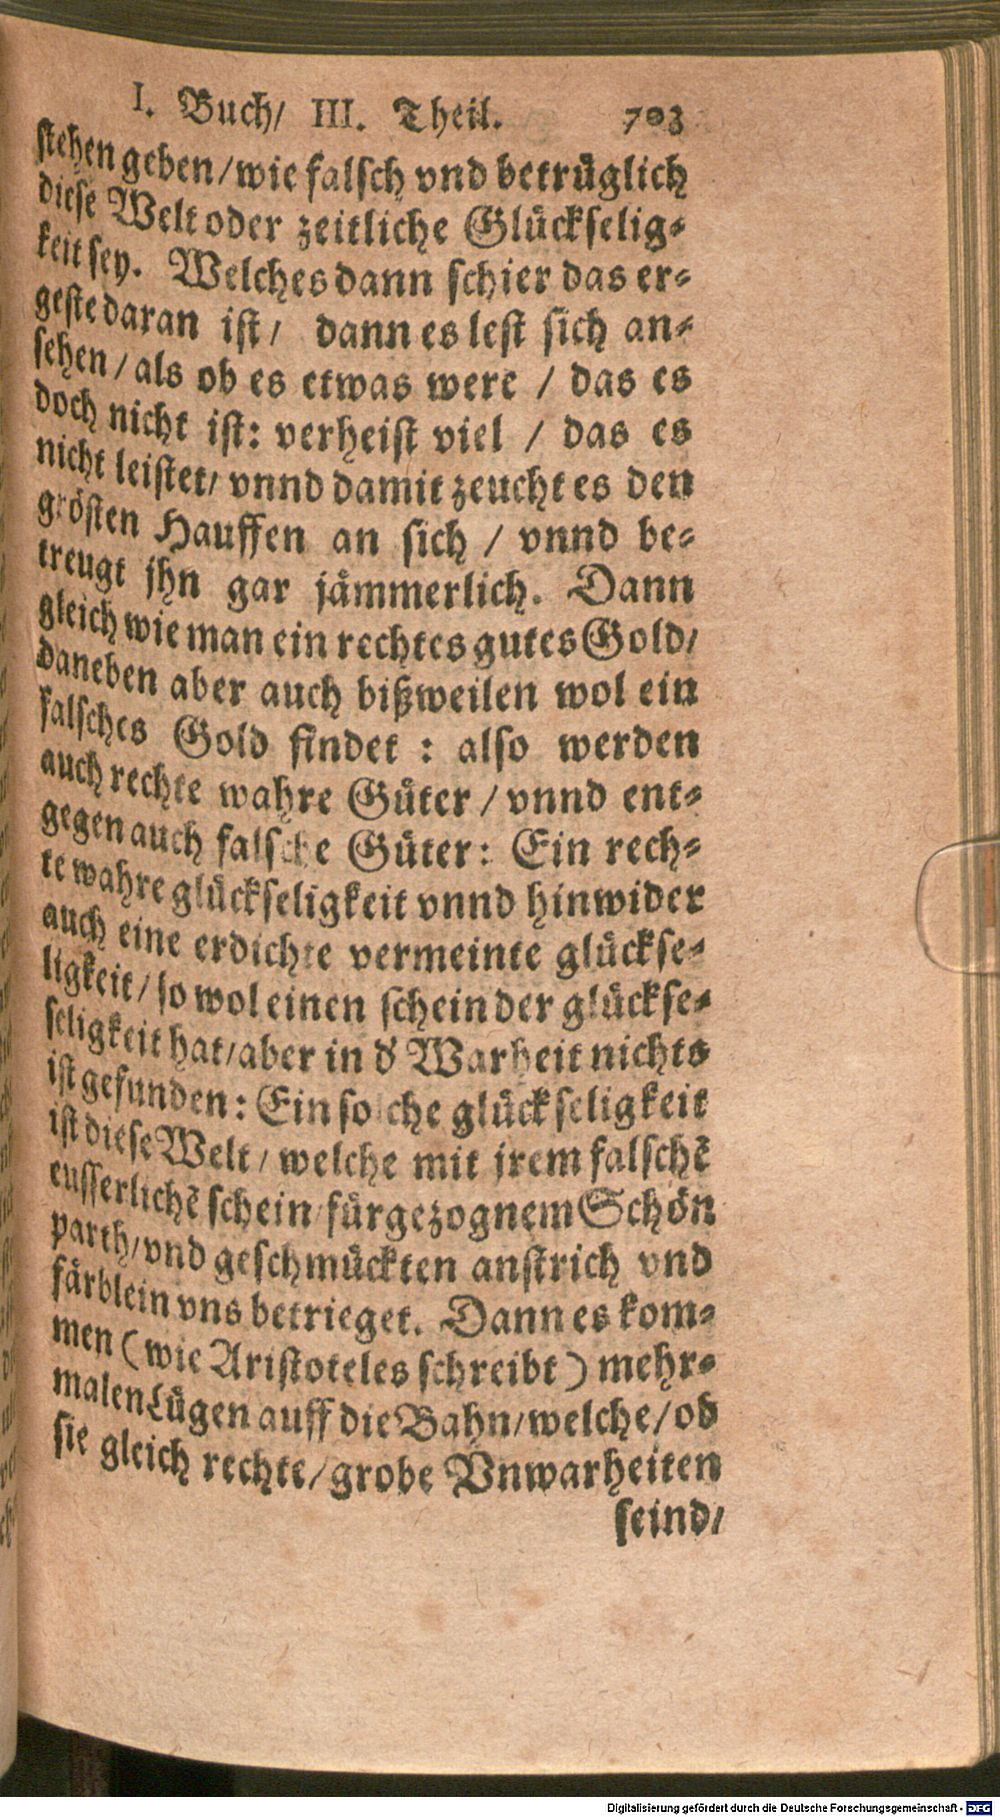 I. Buch/ III. Theil. 703
stehen geben/wie falsch vnd betrüglich
diese Welt oder zeitliche Glückselig-
keit sey. Welches dann schier das er-
geste daran ist/ dann es lest sich an-
sehen/als ob es etwas were / das es
doch nicht ist: verheist viel / das es
nicht leistet/ vnnd damit zeucht es den
grösten Hauffen an sich / vnnd be-
treugt jhn gar jämmerlich. Dann
gleich wie man ein rechtes gutes Gold/
daneben aber auch bißweilen wol ein
falsches Gold findet : also werden
auch rechte wahre Güter / vnnd ent-
gegen auch falsche Güter: Ein rech-
te wahre glückseligkeit vnnd hinwider
auch eine erdichte vermeinte glückse-
ligkeit/so wol einen schein der glückse-
seligkeit hat/aber in d' Warheit nichts
ist gefunden: Ein solche glückseligkeit
ist diese Welt/ welche mit jrem falschē
eusserlichē schein fürgezognem Schön
parth/vnd geschmückten anstrich vnd
färblein vns betrieget. Dann es kom-
men (wie Aristoteles schreibt) mehr-
malen Lügen auff die Bahn/welche/ob
sie gleich rechte/grobe Vnwarheiten
seind/
Digitalisierung gefördert durch die Deutsche Forschungsgemeinschaft - DFG